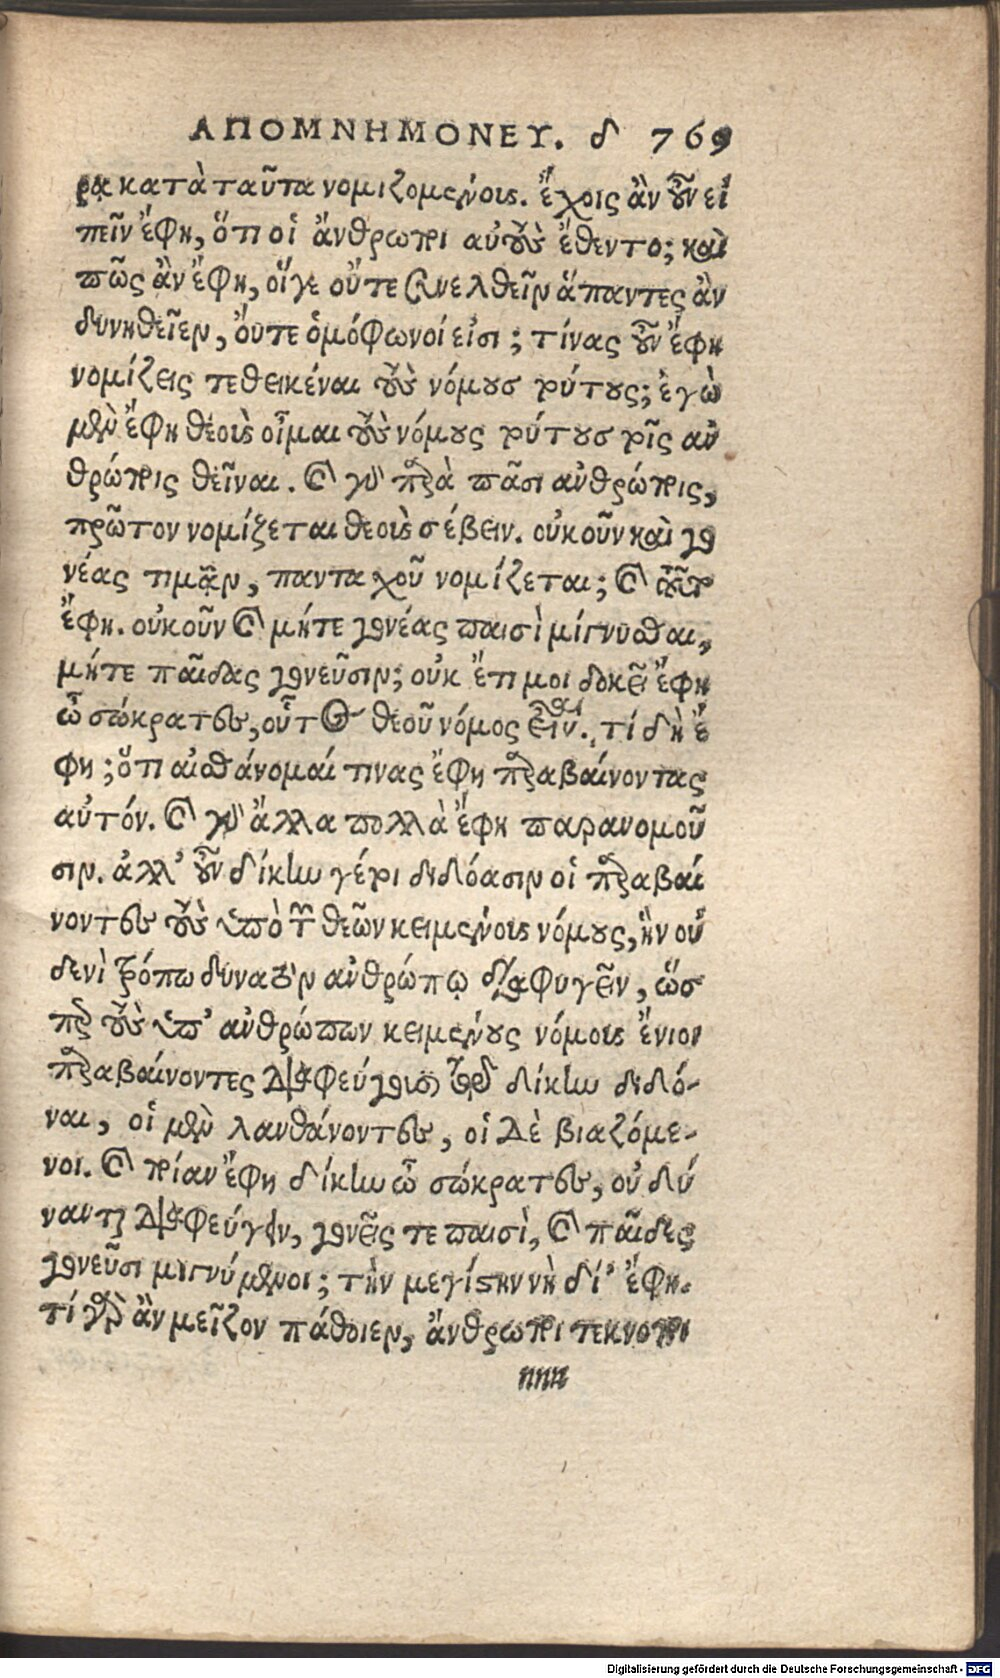 ΑΠΟΜΝΗΜΟΝΕΥ. δ 769
ρᾳ κατὰ ταῦτα νομιζομένοις. ἔχοις ἂν οὖν εἰ
πεῖν ἔφη, ὅτι οἱ ἄνθρωποι αὐτοὺς ἔθεντο; καὶ
πῶς ἂν ἔφη, οἵγε οὔτε συνελθεῖν ἅπαντες ἂν
δυνηθεῖεν, ὄυτε ὁμόφωνοί εἰσι; τίνας οὖν ἔφη
νομίζεις τεθεικέναι τοὺς νόμους τούτους; ἐγὼ
μὲν ἔφη θεοὺς οἶμαι τοὺς νόμους τούτους τοῖς ἀν
θρώποις θεῖναι. καὶ γὰρ παρὰ πᾶσι ἀνθρώποις,
πρῶτον νομίζεται θεοὺς σέβειν. οὐκοῦν καὶ γο
νέας τιμᾷν, πανταχοῦ νομίζεται; καὶ τοῦτο
ἔφη. οὐκοῦν καὶ μήτε γονέας παισὶ μίγνυσθαι,
μήτε παῖδας γονεῦσιν; οὐκ ἔτι μοι δοκεῖ ἔφη
ὦ σώκρατες, οὗτος θεοῦ νόμος εἶναι. τί δὴ ἔ
φη; ὅτι αἰσθάνομαί τινας ἔφη παραβαίνοντας
αὐτόν. καὶ γὰρ ἄλλα πολλὰ ἔφη παρανομοῦ
σιν. ἀλλ' οὖν δίκην γέ τοι διδόασιν οἱ παραβαί
νοντες τοὺς ὑπὸ τῶν θεῶν κειμένους νόμους, ἣν οὐ
δενὶ τρόπω δυνατὸν ἀνθρώπῳ διαφυγεῖν, ὥσ
περ τοὺς ὑπ' ἀνθρώπων κειμένους νόμους ἔνιοι
παραβαίνοντες διαφεύγουσι τὸ δίκην διδό-
ναι, οἱ μὲν λανθάνοντες, οἱ δὲ βιαζόμε-
νοι. καὶ ποίαν ἔφη δίκην ὦ σώκρατες, οὐ δύ
ναντai διαφεύγειν, γονεῖς τε παισὶ, καὶ παῖδες
γονεῦσι μιγνύμενοι; τὴν μεγίστην νὴ δί' ἔφη.
τί γὰρ ἂν μεῖζον πάθοιεν, ἄνθρωποι τεκνοποι
nnn
Digitalisierung gefördert durch die Deutsche Forschungsgemeinschaft - DFG